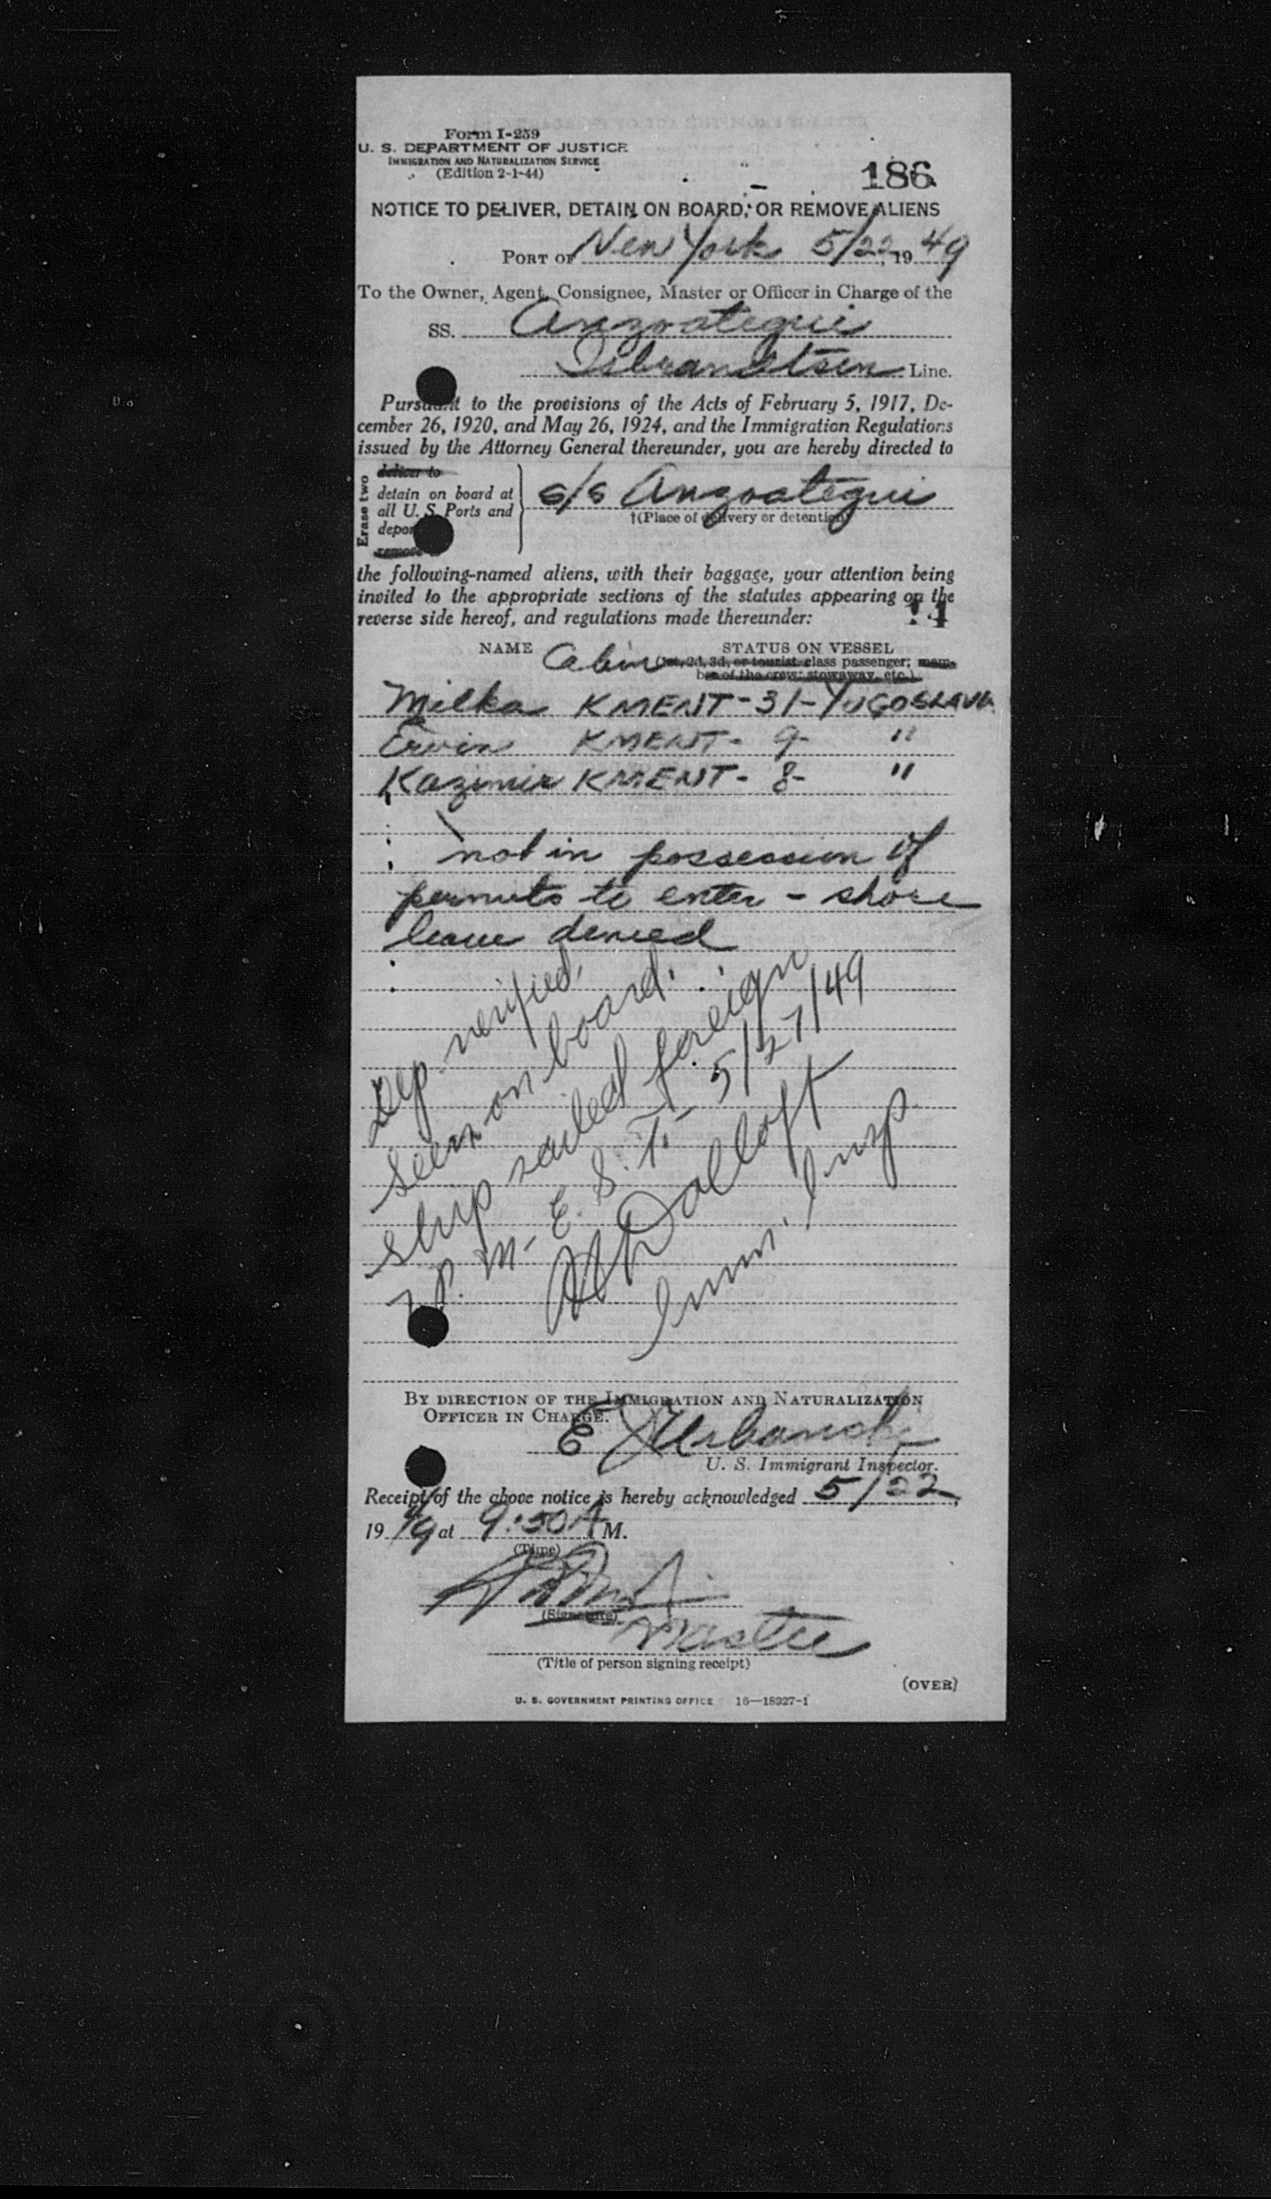 Form I-259
U. S. DEPARTMENT OF JUSTICE
IMMIGRATION AND NATURALIZATION SERVICE
(Edition 2-1-44)
186
NOTICE TO DELIVER, DETAIN ON BOARD, OR REMOVE ALIENS
PORT OF New York 5/22, 1949
To the Owner, Agent, Consignee, Master or Officer in Charge of the
SS. Anzoategui
Isbrandtsen Line.
Pursuant to the provisions of the Acts of February 5, 1917, De-
cember 26, 1920, and May 26, 1924, and the Immigration Regulations
issued by the Attorney General thereunder, you are hereby directed to
Erase two
deliver to
detain on board at
all U. S. Ports and
depor
remove
s/s Anzoategui
†(Place of delivery or detention)
the following-named aliens, with their baggage, your attention being
invited to the appropriate sections of the statutes appearing on the
reverse side hereof, and regulations made thereunder:
14
NAME Cabin STATUS ON VESSEL
(1st, 2d, 3d, or tourist class passenger; mem-
ber of the crew; stowaway, etc.)
Milka KMENT - 31 - YUGOSLAVIA
Ervin KMENT - 9 - "
Kazimir KMENT - 8 - "
not in possession of
permits to enter - shore
leave denied
Dep. verified,
seen on board.
ship sailed foreign
7 P. M - E. S. T. - 5/27/49
Imm. Insp.
BY DIRECTION OF THE IMMIGRATION AND NATURALIZATION
OFFICER IN CHARGE.
E Urbanck
U. S. Immigrant Inspector.
Receipt of the above notice is hereby acknowledged 5/22,
1949 at 9:50 A M.
(Time)
(Signature)
Master
(Title of person signing receipt)
(OVER)
U. S. GOVERNMENT PRINTING OFFICE 16—18927-1